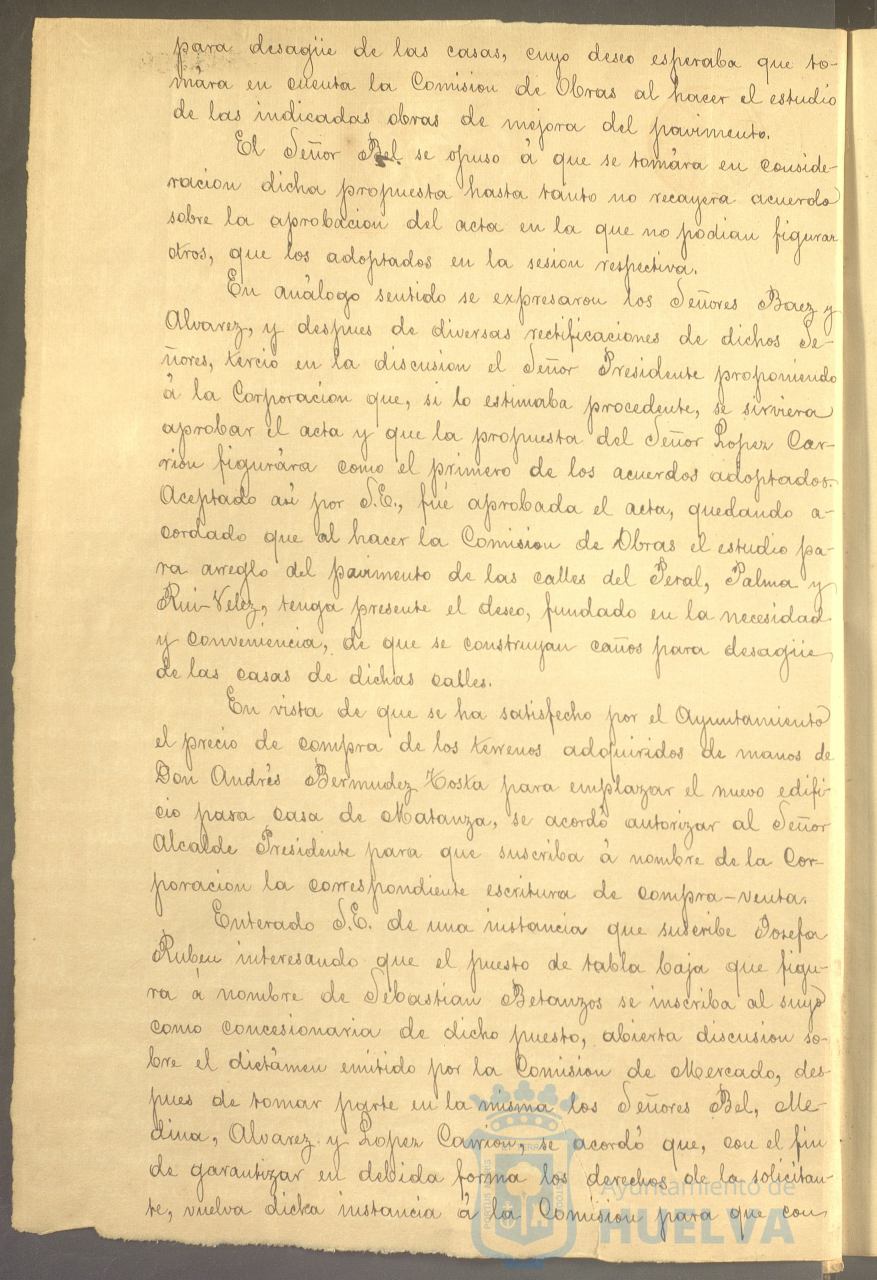 para desagüe de las casas, cuyo deseo esperaba que to-
mára en cuenta la Comision de Obras al hacer el estudio
de las indicadas obras de mejora del pavimento.
El Señor Bel se opuso á que se tomára en conside-
racion dicha propuesta hasta tanto no recayera acuerdo
sobre la aprobacion del acta en la que no podian figurar
otros, que los adoptados en la sesion respectiva.
En análogo sentido se expresaron los Señores Baez y
Alvarez, y despues de diversas rectificaciones de dichos Se-
ñores, terció en la discusion el Señor Presidente proponiendo
á la Corporacion que, si lo estimaba procedente, se sirviera
aprobar el acta y que la propuesta del Señor Lopez Car-
rion figurára como el primero de los acuerdos adoptados.
Aceptado así por S.E., fué aprobada el acta, quedando a-
cordado que al hacer la Comision de Obras el estudio pa-
ra arreglo del pavimento de las calles del Peral, Palma y
Rui-Velez, tenga presente el deseo, fundado en la necesidad
y conveniencia, de que se construyan caños para desagüe
de las casas de dichas calles.
En vista de que se ha satisfecho por el Ayuntamiento
el precio de compra de los terrenos adquiridos de manos de
Don Andrés Bermudez Tosta para emplazar el nuevo edifi-
cio para casa de Matanza, se acordó autorizar al Señor
Alcalde Presidente para que suscriba á nombre de la Cor-
poracion la correspondiente escritura de compra-venta.
Enterado S.E. de una instancia que suscribe Josefa
Ruben interesando que el puesto de tabla baja que figu-
ra á nombre de Sebastian Betanzos se inscriba al suyo
como concesionaria de dicho puesto, abierta discusion so-
bre el dictámen emitido por la Comision de Mercado, des-
pues de tomar parte en la misma los Señores Bel, Me-
dina, Alvarez y Lopez Carrion, se acordó que, con el fin
de garantizar en debida forma los derechos de la solicitan-
te, vuelva dicha instancia á la Comision para que con
Ayuntamiento de
HUELVA